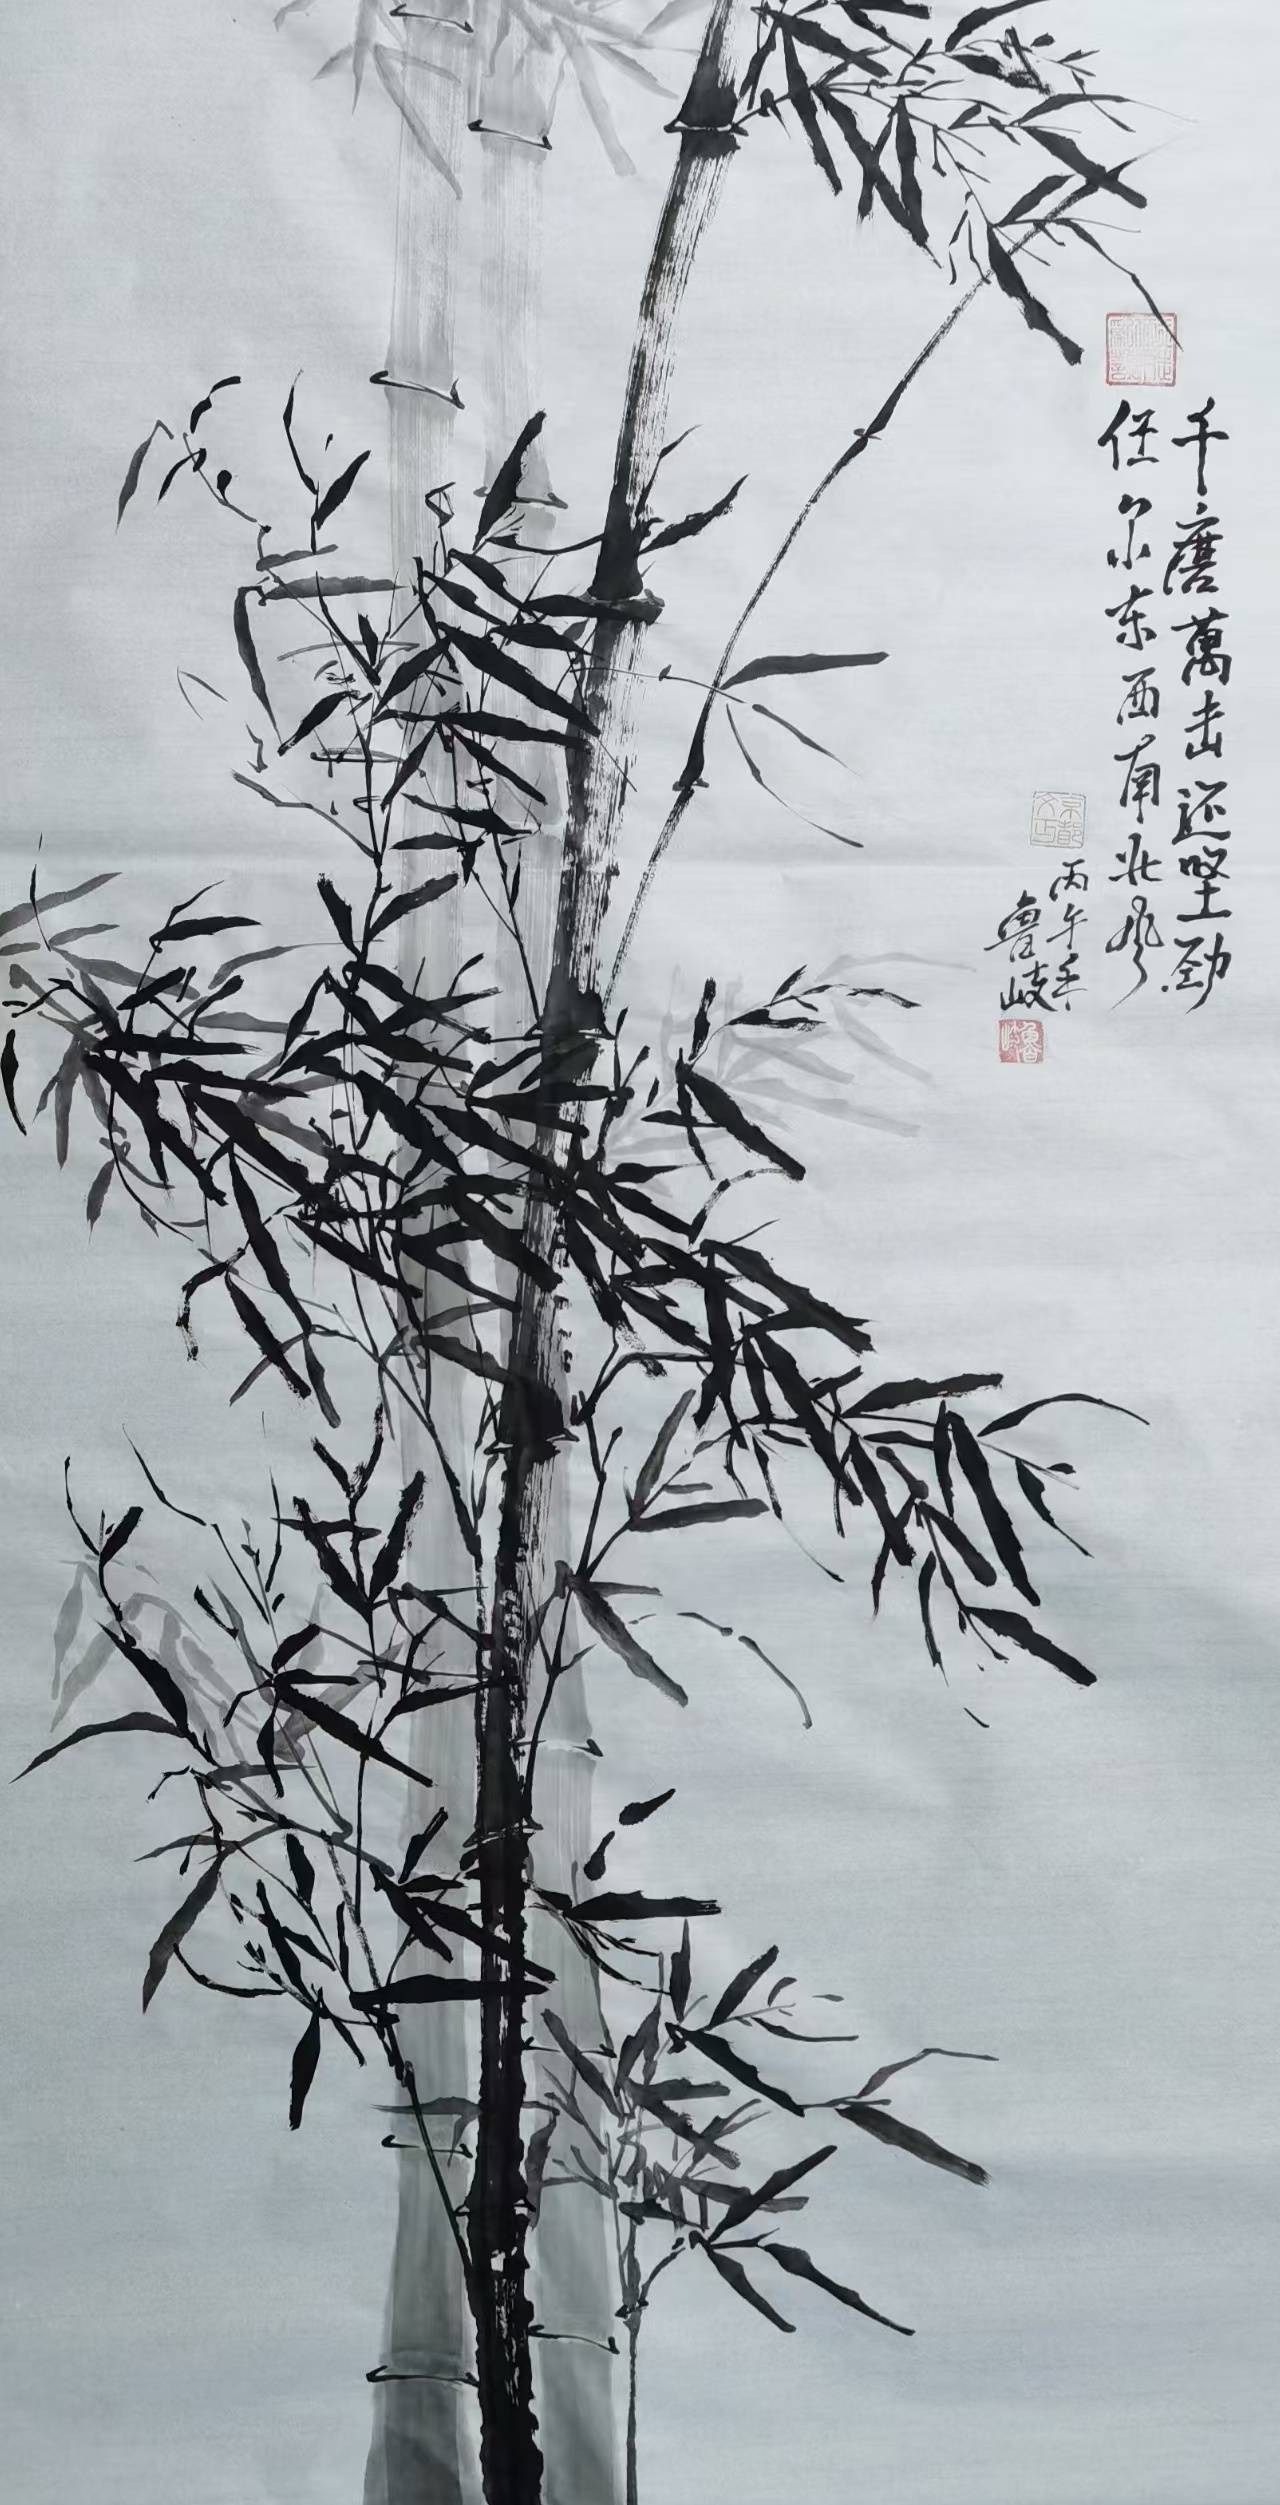 千磨萬击还坚劲
任尔东西南北风
丙午年
魯岐
京都
魯岐